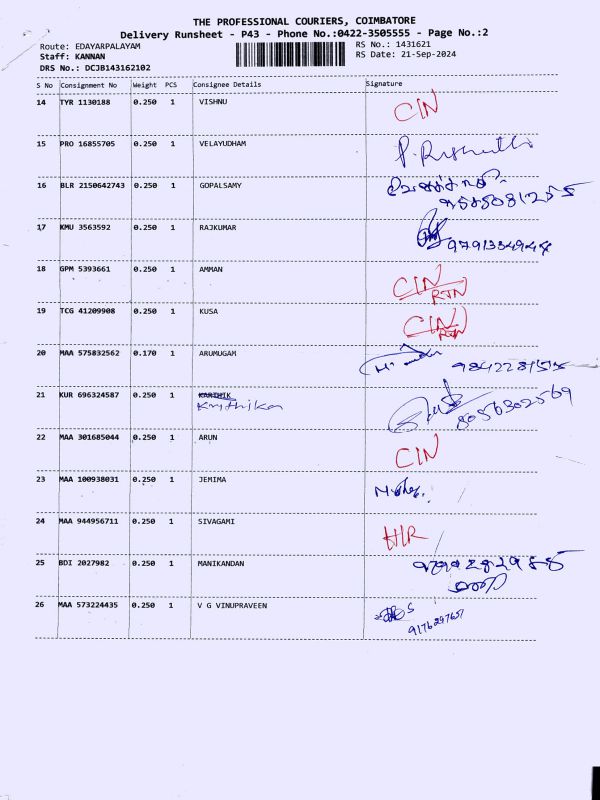 THE PROFESSIONAL COURIERS, COIMBATORE
Delivery Runsheet - P43 - Phone No.:0422-3505555 - Page No.:2
Route: EDAYARPALAYAM RS No.: 1431621
Staff: KANNAN RS Date: 21-Sep-2024
DRS No.: DCJB143162102
S No Consignment No Weight PCS Consignee Details Signature
14 TYR 1130188 0.250 1 VISHNU CIN
15 PRO 16855705 0.250 1 VELAYUDHAM
16 BLR 2150642743 0.250 1 GOPALSAMY
17 KMU 3563592 0.250 1 RAJKUMAR
18 GPM 5393661 0.250 1 AMMAN CIN
RTN
19 TCG 41209908 0.250 1 KUSA CIN
RTN
20 MAA 575832562 0.170 1 ARUMUGAM
21 KUR 696324587 0.250 1 KARTHIK 8056302569
Krithika
22 MAA 301685044 0.250 1 ARUN CIN
23 MAA 100938031 0.250 1 JEMIMA
24 MAA 944956711 0.250 1 SIVAGAMI HIR
25 BDI 2027982 0.250 1 MANIKANDAN
26 MAA 573224435 0.250 1 V G VINUPRAVEEN
9176297657